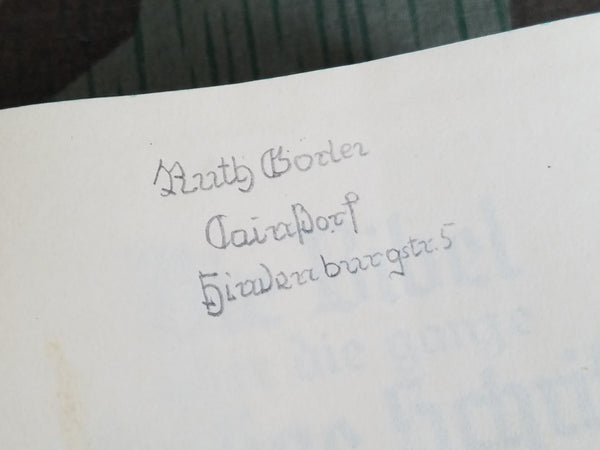 Ruth
Cainsdorf
Hindenburgstr. 5
die ganze